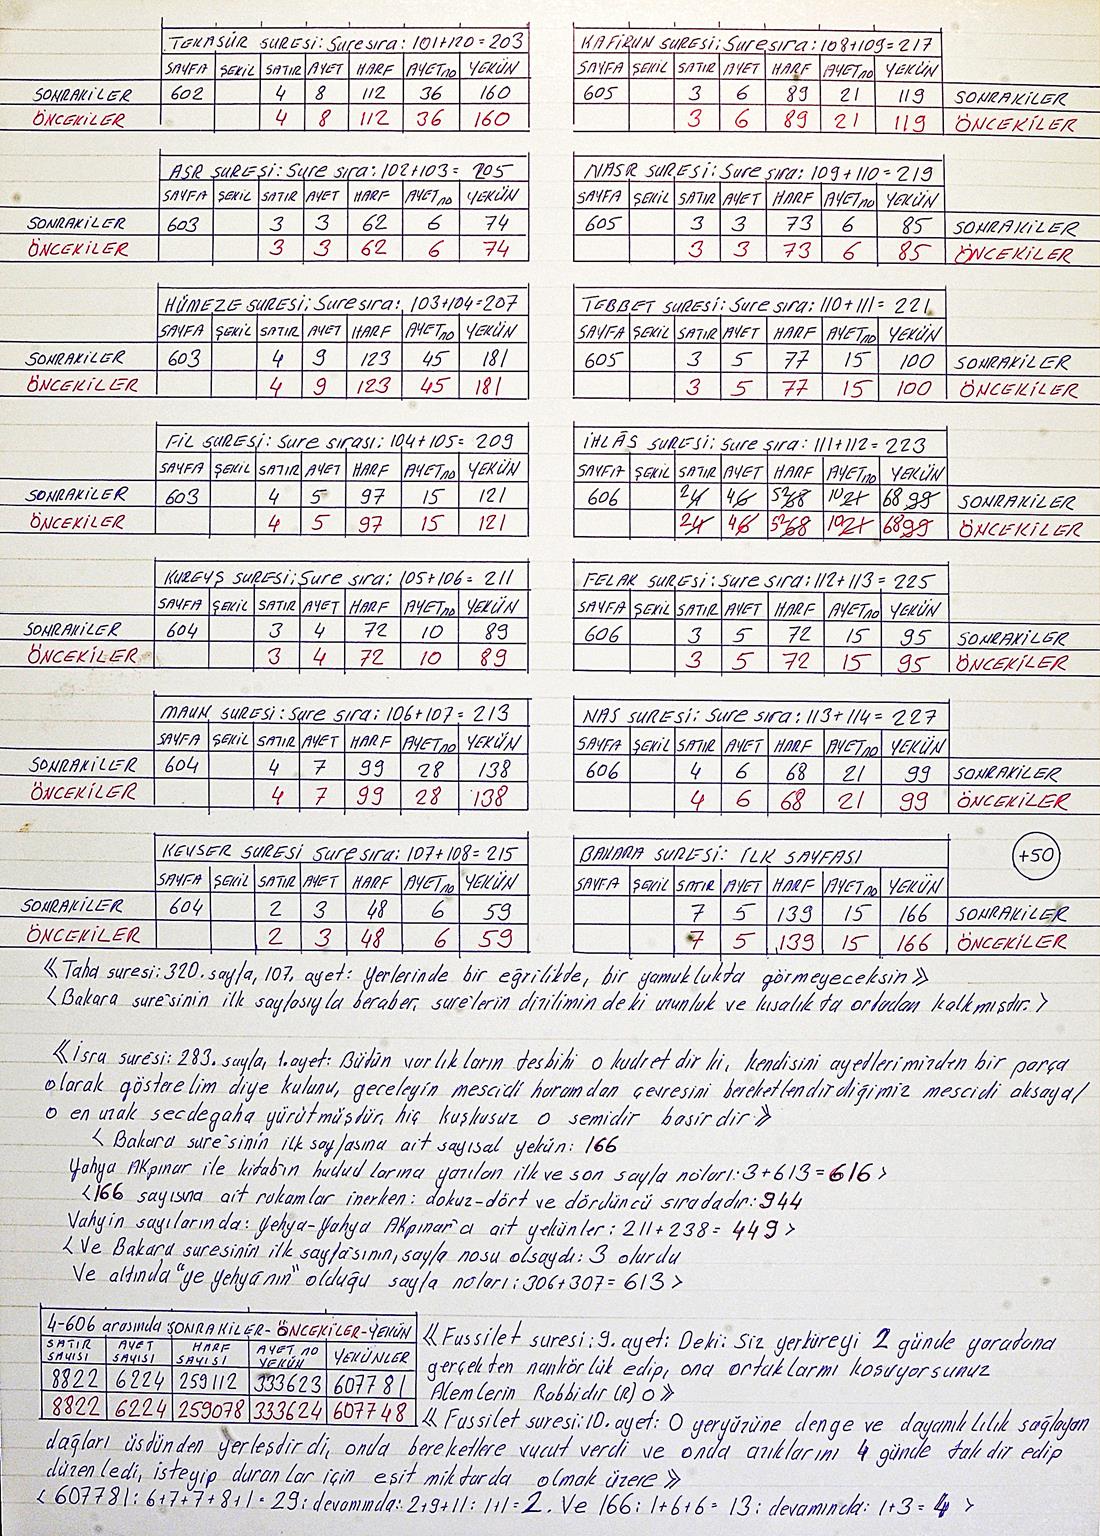 TEKASÜR SURESİ: Sure sıra: 101+120=203
SAYFA ŞEKİL SATIR AYET HARF AYET no YEKÜN
SONRAKİLER 602 4 8 112 36 160
ÖNCEKİLER 4 8 112 36 160
ASR SURESİ: Sure sıra: 102+103= 205
SAYFA ŞEKİL SATIR AYET HARF AYET no YEKÜN
SONRAKİLER 603 3 3 62 6 74
ÖNCEKİLER 3 3 62 6 74
HÜMEZE SURESİ: Sure sıra: 103+104=207
SAYFA ŞEKİL SATIR AYET HARF AYET no YEKÜN
SONRAKİLER 603 4 9 123 45 181
ÖNCEKİLER 4 9 123 45 181
FİL SURESİ: Sure sırası: 104+105= 209
SAYFA ŞEKİL SATIR AYET HARF AYET no YEKÜN
SONRAKİLER 603 4 5 97 15 121
ÖNCEKİLER 4 5 97 15 121
KUREYŞ SURESİ: Sure sıra: 105+106= 211
SAYFA ŞEKİL SATIR AYET HARF AYET no YEKÜN
SONRAKİLER 604 3 4 72 10 89
ÖNCEKİLER 3 4 72 10 89
MAUN SURESİ: Sure sıra: 106+107= 213
SAYFA ŞEKİL SATIR AYET HARF AYET no YEKÜN
SONRAKİLER 604 4 7 99 28 138
ÖNCEKİLER 4 7 99 28 138
KEVSER SURESİ Sure sıra: 107+108= 215
SAYFA ŞEKİL SATIR AYET HARF AYET no YEKÜN
SONRAKİLER 604 2 3 48 6 59
ÖNCEKİLER 2 3 48 6 59
KAFİRUN SURESİ: Sure sıra: 108+109=217
SAYFA ŞEKİL SATIR AYET HARF AYET no YEKÜN
605 3 6 89 21 119 SONRAKİLER
3 6 89 21 119 ÖNCEKİLER
NASR SURESİ: Sure sıra: 109+110=219
SAYFA ŞEKİL SATIR AYET HARF AYET no YEKÜN
605 3 3 73 6 85 SONRAKİLER
3 3 73 6 85 ÖNCEKİLER
TEBBET SURESİ: Sure sıra: 110+111= 221
SAYFA ŞEKİL SATIR AYET HARF AYET no YEKÜN
605 3 5 77 15 100 SONRAKİLER
3 5 77 15 100 ÖNCEKİLER
İHLÂS SURESİ: Sure sıra: 111+112= 223
SAYFA ŞEKİL SATIR AYET HARF AYET no YEKÜN
606 2 4 4 6 52 68 10 21 68 99 SONRAKİLER
2 4 4 6 52 68 10 21 68 99 ÖNCEKİLER
FELAK SURESİ: Sure sıra: 112+113= 225
SAYFA ŞEKİL SATIR AYET HARF AYET no YEKÜN
606 3 5 72 15 95 SONRAKİLER
3 5 72 15 95 ÖNCEKİLER
NAS SURESİ: Sure sıra: 113+114= 227
SAYFA ŞEKİL SATIR AYET HARF AYET no YEKÜN
606 4 6 68 21 99 SONRAKİLER
4 6 68 21 99 ÖNCEKİLER
BAKARA SURESİ: İLK SAYFASI +50
SAYFA ŞEKİL SATIR AYET HARF AYET no YEKÜN
7 5 139 15 166 SONRAKİLER
7 5 139 15 166 ÖNCEKİLER
《Taha suresi: 320. sayfa, 107. ayet: Yerlerinde bir eğrilikte, bir yamuklukta görmeyeceksin》
< Bakara suresinin ilk sayfasıyla beraber, surelerin dizilimindeki uzunluk ve kısalıkta ortadan kalkmıştır. >
《İsra suresi: 283. sayfa, 1. ayet: Bütün varlıkların tesbihi o kudretdir ki, kendisini ayedlerimizden bir parça
olarak gösterelim diye kulunu, geceleyin mescidi haramdan çevresini bereketlendirdiğimiz mescidi aksaya/
o en uzak secdegaha yürütmüşdür, hiç kuşkusuz o semidir basirdir》
< Bakara suresinin ilk sayfasına ait sayısal yekün: 166
Yahya AKpınar ile kitabın hududlarına yazılan ilk ve son sayfa noları: 3+613= 616 >
< 166 sayısına ait rakamlar inerken: dokuz-dört ve dördüncü sıradadır: 944
Vahyin sayılarında: Yehya-Yahya AKpınar'a ait yekünler: 211+238= 449 >
< Ve Bakara suresinin ilk sayfasının, sayfa nosu olsaydı: 3 olurdu
Ve altında "ye yehya'nın" olduğu sayfa noları: 306+307= 613 >
4-606 arasında SONRAKİLER-ÖNCEKİLER-YEKÜN
SATIR SAYISI AYET SAYISI HARF SAYISI AYET NO YEKÜN YEKÜNLER
8822 6224 259112 333623 607781
8822 6224 259078 333624 607748
《Fussilet suresi: 9. ayet: Deki: Siz yerküreyi 2 günde yaratana
gerçekten nankörlük edip, ona ortaklarmı koşuyorsunuz
Alemlerin Rabbidir (R) O》
《Fussilet suresi: 10. ayet: O yeryüzüne denge ve dayanıklılık sağlayan
dağları üsdünden yerleşdirdi, onda bereketlere vucut verdi ve onda azıklarını 4 günde takdir edip
düzenledi, isteyip duranlar için eşit miktarda olmak üzere》
< 607781: 6+7+7+8+1= 29: devamında: 2+9=11: 1+1= 2. Ve 166: 1+6+6= 13: devamında: 1+3= 4 >